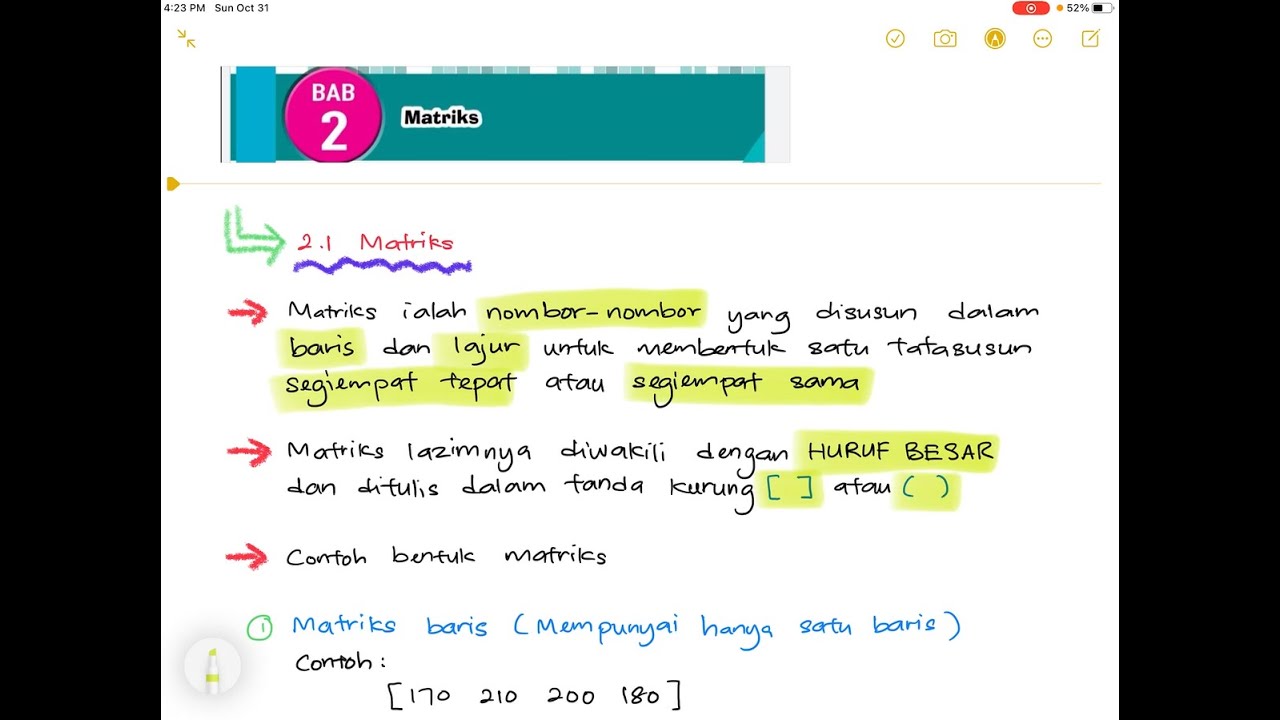 4:23 PM Sun Oct 31
52%
BAB
2
Matriks
2.1 Matriks
Matriks ialah nombor-nombor yang disusun dalam
baris dan lajur untuk membentuk satu tatasusun
segiempat tepat atau segiempat sama
Matriks lazimnya diwakili dengan HURUF BESAR
dan ditulis dalam tanda kurung [ ] atau ( )
Contoh bentuk matriks
1 Matriks baris (Mempunyai hanya satu baris)
Contoh:
[170 210 200 180]